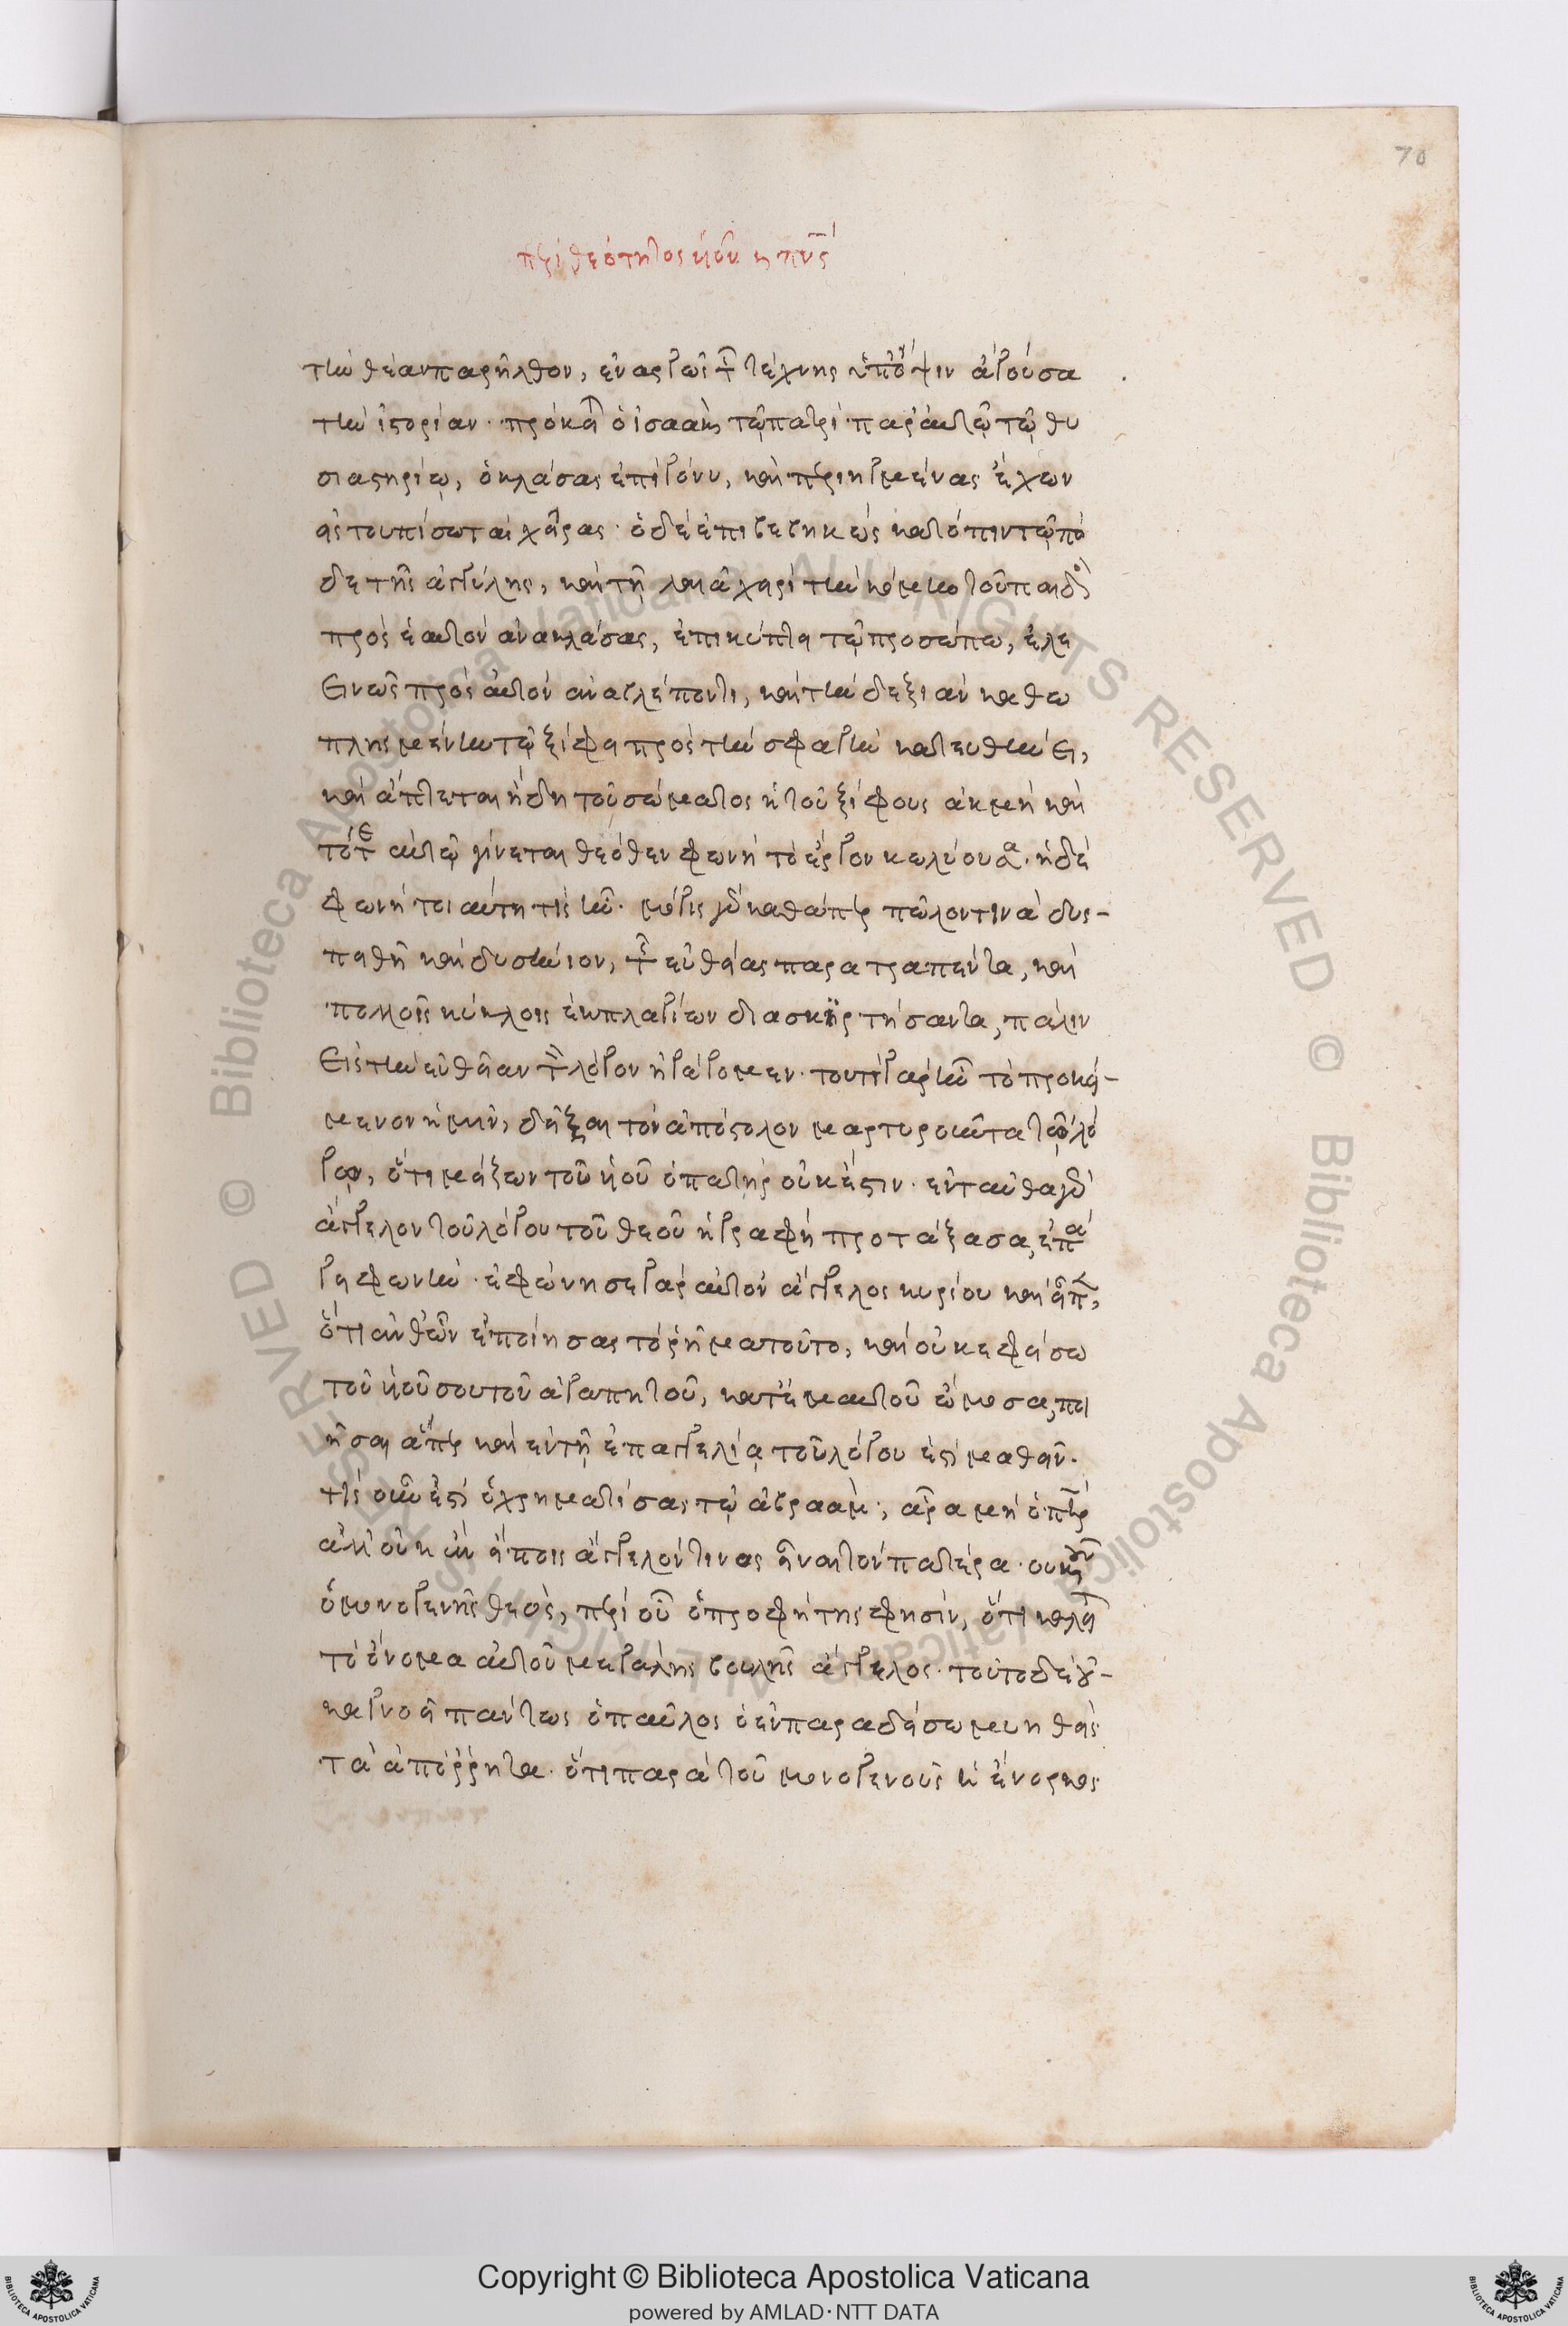 70
περὶ θεότητος υἱοῦ κ πνς
τὴν θέαν παρῆλθον, ἐναργῶς τ τέχνης ὑπ ὄψιν ἀγούσα
τὴν ἱστορίαν. πρόκει ὁ ἰσαὰκ τῷ πατρὶ παρ αὐτῷ τῷ θυ
σιαστηρίῳ, ὀκλάσας ἐπὶ γόνυ, καὶ περιηγμένας ἔχων
εἰς τουπίσω τὰς χεῖρας. ὁ δὲ ἐπιβεβηκὼς κατόπιν τῷ πο
δὲ τῆς ἀγκύλης, καὶ τῇ λαιᾷ χειρὶ τὴν κόμην τοῦ παιδὸς
πρὸς ἑαυτὸν ἀνακλάσας, ἐπικύπτει τῷ προσώπω, ἐλε
εινῶς πρὸς αὐτὸν ἀναβλέποντι, καὶ τὴν δεξιὰν καθω
πλισμένην τῷ ξίφει πρὸς τὴν σφαγὴν κατευθύνει,
καὶ ἅπτεται ἤδη τοῦ σώματος ἡ τοῦ ξίφους ἀκμὴ καὶ
τότε αὐτῷ γίνεται θεόθεν φωνὴ τὸ ἔργον κωλύουσα. ἡ δὲ
φωνὴ τοιαύτη τίς ἦν. μόγις γὰρ καθάπερ πῶλον τινὰ δυσ-
πειθῆ καὶ δυσήνιον, τ εὐθείας παρατραπέντα, καὶ
πολλοῖς κύκλοις ἐκ πλαγίων διασκιρτήσαντα, πάλιν
Εἰς τὴν εὐθεῖαν τ λόγον ἠγάγομεν. τουτὶ γὰρ ἦν τὸ προκεί-
μενον ἡμῖν, δεῖξαι τὸν ἀπόστολον μαρτυροῦντα τῷ λό
γῳ, ὅτι μείζων τοῦ υἱοῦ ὁ πατὴρ οὐκ ἔστιν. ἐνταῦθα γὰρ
ἄγγελον τοῦ λόγου τοῦ θεοῦ ἡ γραφὴ προτάξασα, ἐπά
γει φωνὴν. ἐφώνησε γὰρ αὐτὸν ἄγγελος κυρίου καὶ εἶπεν,
ὅτι ἀνθ ὧν ἐποίησας τὸ ῥῆμα τοῦτο, καὶ οὐκ ἐφείσω
τοῦ υἱοῦ σου τοῦ ἀγαπητοῦ, κατ ἐμαυτοῦ ὤμοσα, ποι
ῆσαι ἅπερ καὶ ἐν τῇ ἐπαγγελίᾳ τοῦ λόγου ἐστὶ μαθεῖν.
τίς οὖν ἐστὶ ὁ χρηματίσας τῷ ἀβραὰμ; ἆρα μὴ ὁ πηρ
ἀλλ οὐκ ἂν εἴποις ἄγγελόν τινος εἶναι τὸν πατέρα. οὐκοῦν
ὁ μονογενὴς θεὸς, περὶ οὗ ὁ προφήτης φησὶν, ὅτι καλεῖ
τὸ ὄνομα αὐτοῦ μεγάλης βουλῆς ἄγγελος. τοῦτο δὲ ἠ-
κα γνοεῖ πάντως ὁ παῦλος ὁ ἐν παραδείσω μυηθεὶς
τὰ ἀπόρρητα. ὅτι παρὰ τοῦ μονογενοῦς ἡ ἔνορκος